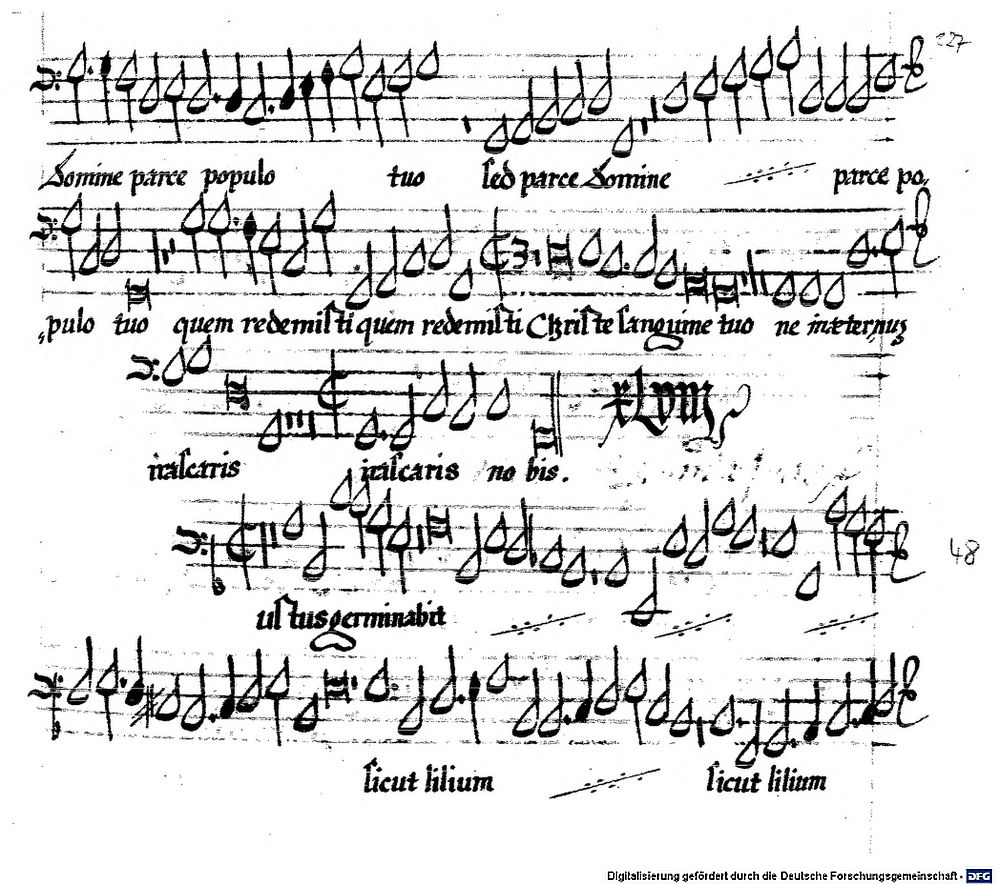 227
Domine parce populo tuo sed parce Domine parce po,
„pulo tuo quem redemisti quem redemisti Christe sanguine tuo ne inæternuȝ
irascaris irascaris no bis.
xLvııı
48
ustus germinabit
sicut lilium sicut lilium
Digitalisierung gefördert durch die Deutsche Forschungsgemeinschaft - DFG